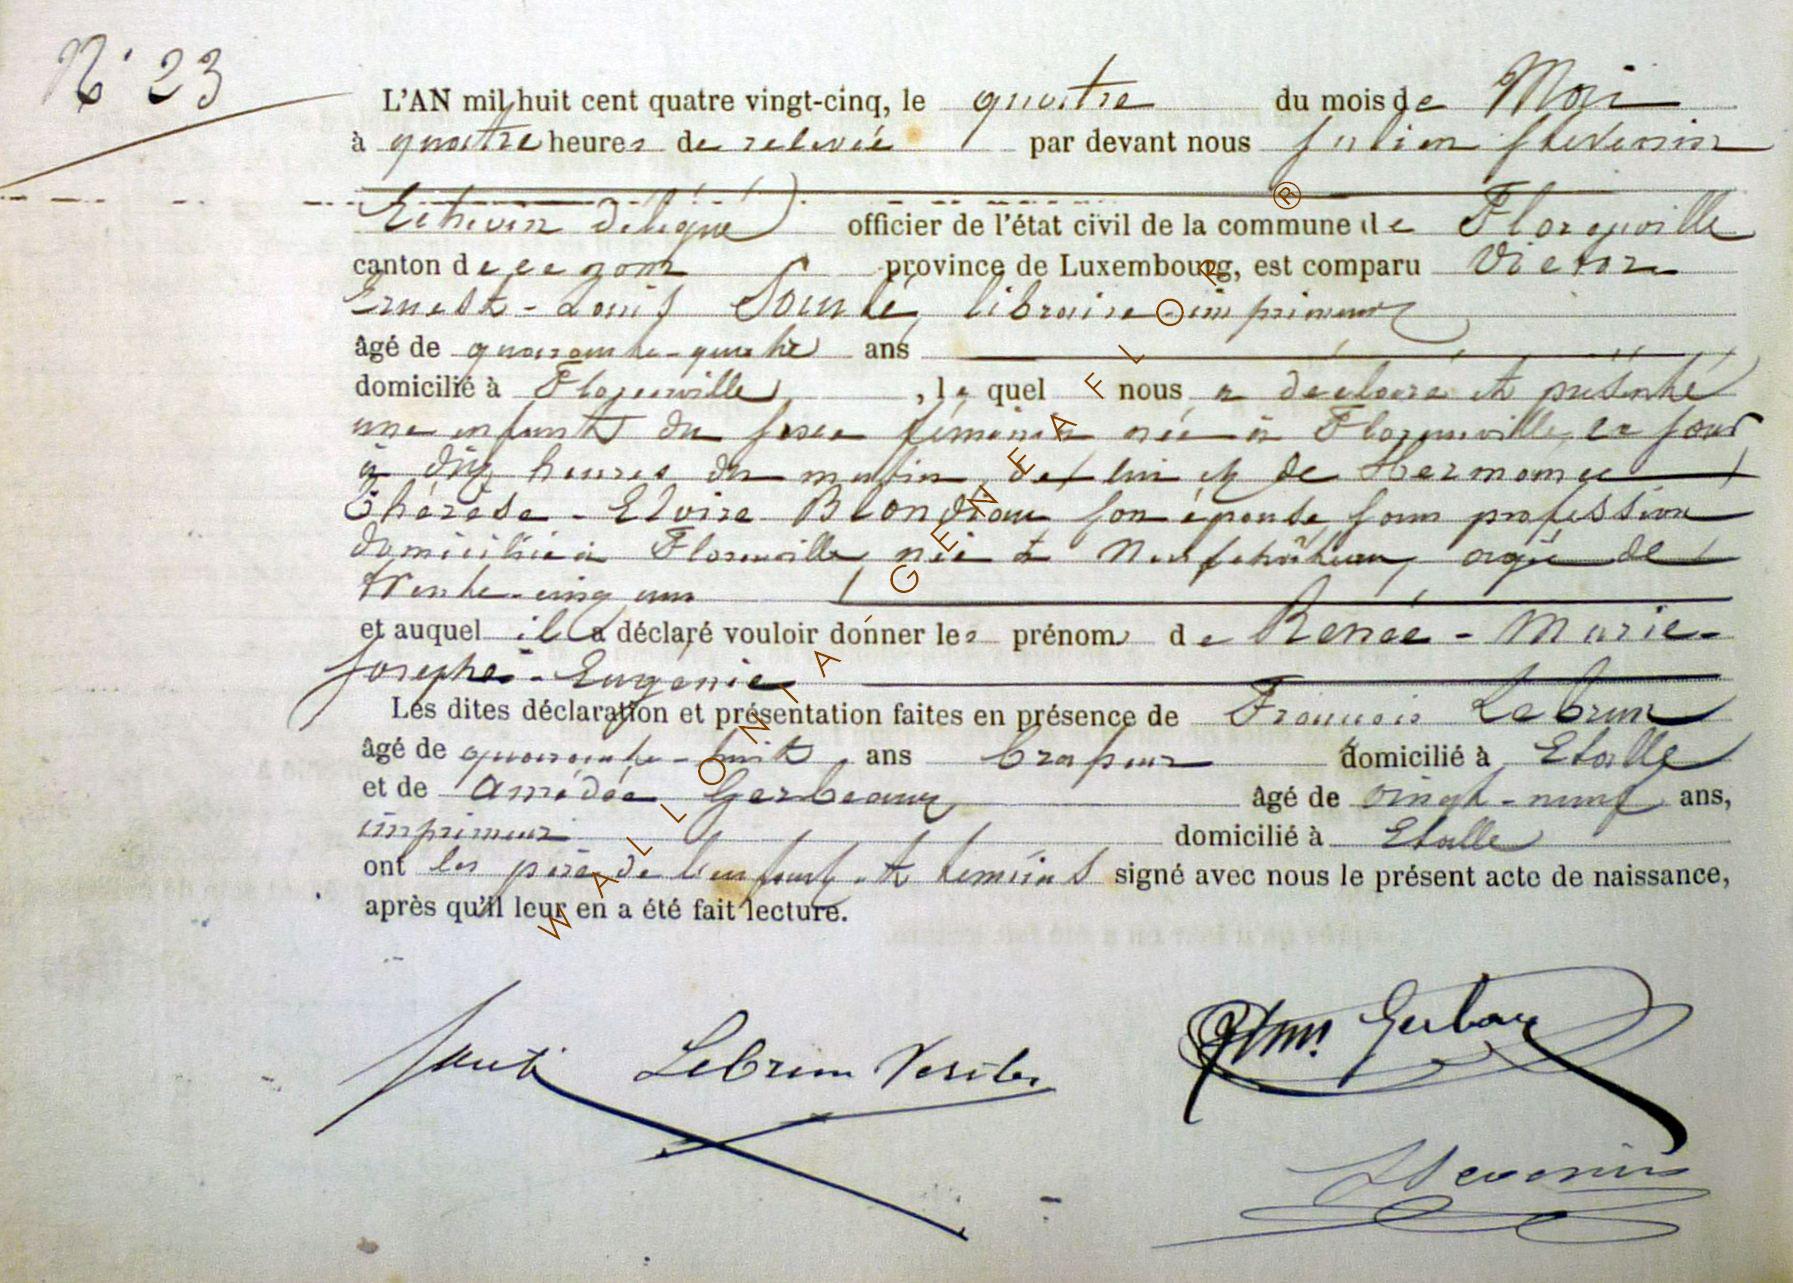 N° 23
L'AN mil huit cent quatre vingt-cinq, le quatre du mois de Mai
à quatre heures de relevée par devant nous Julien Stevenin
Echevin délégué officier de l'état civil de la commune de Florenville
canton de ce nom province de Luxembourg, est comparu Victor
Ernest-Louis Soulié, libraire-imprimeur
âgé de quarante-quatre ans
domicilié à Florenville, lequel nous a déclaré et présenté
une enfant du sexe féminin née à Florenville, ce jour
à dix heures du matin, de lui et de Hermance
Thérèse-Elvire Blondiau son épouse sans profession
domiciliée à Florenville, née à Neufchâteau, agée de
trente-cinq ans
et auquel il a déclaré vouloir donner les prénoms de Renée-Marie-
Josephe-Eugénie
Les dites déclaration et présentation faites en présence de François Lebrun
âgé de quarante-huit ans domicilié à Etalle
et de Amédée Gerbeaux âgé de vingt-neuf ans,
imprimeur domicilié à Etalle
ont les père de l'enfant et temoins signé avec nous le présent acte de naissance,
après qu'il leur en a été fait lecture.
Lebrun
Am. Gerbaux
JStevenin
WALLONIA GENEAFLOR ®